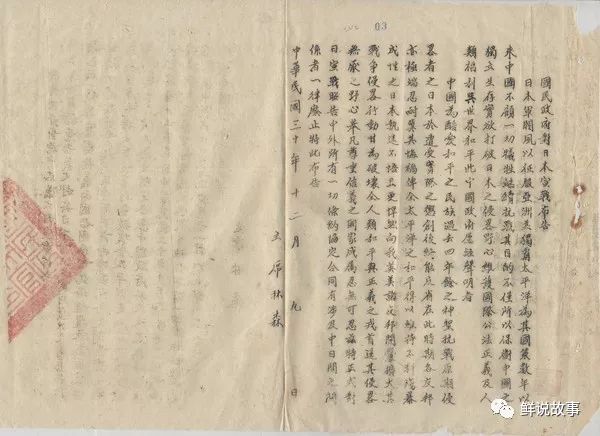 03
國民政府對日本宣戰布告
日本軍閥夙以征服亞洲並獨霸太平洋為其國策數年以
來中國不顧一切犧牲繼續抗戰其目的不僅所以保衛中國之
獨立生存實欲打破日本之侵畧野心維護國際公法正義及人
類福利與世界和平此中國政府屢經聲明者
中國為酷愛和平之民族過去四年餘之神聖抗戰原期侵
畧者之日本於遭受實際之懲創後終能反省在此時期各友邦
亦極端忍耐冀其悔禍俾全太平洋之和平得以維持不料殘暴
成性之日本執迷不悟且更悍然向我英美諸友邦開釁擴大其
戰爭侵畧行動甘為破壞全人類和平與正義之戎首逞其侵畧
無厭之野心舉凡尊重信義之國家咸屬忍無可忍茲特正式對
日宣戰昭告中外所有一切條約協定合同有涉及中日間之關
係者一律廢止特此布告
中華民國三十年十二月九日
主席林森
鲜说故事